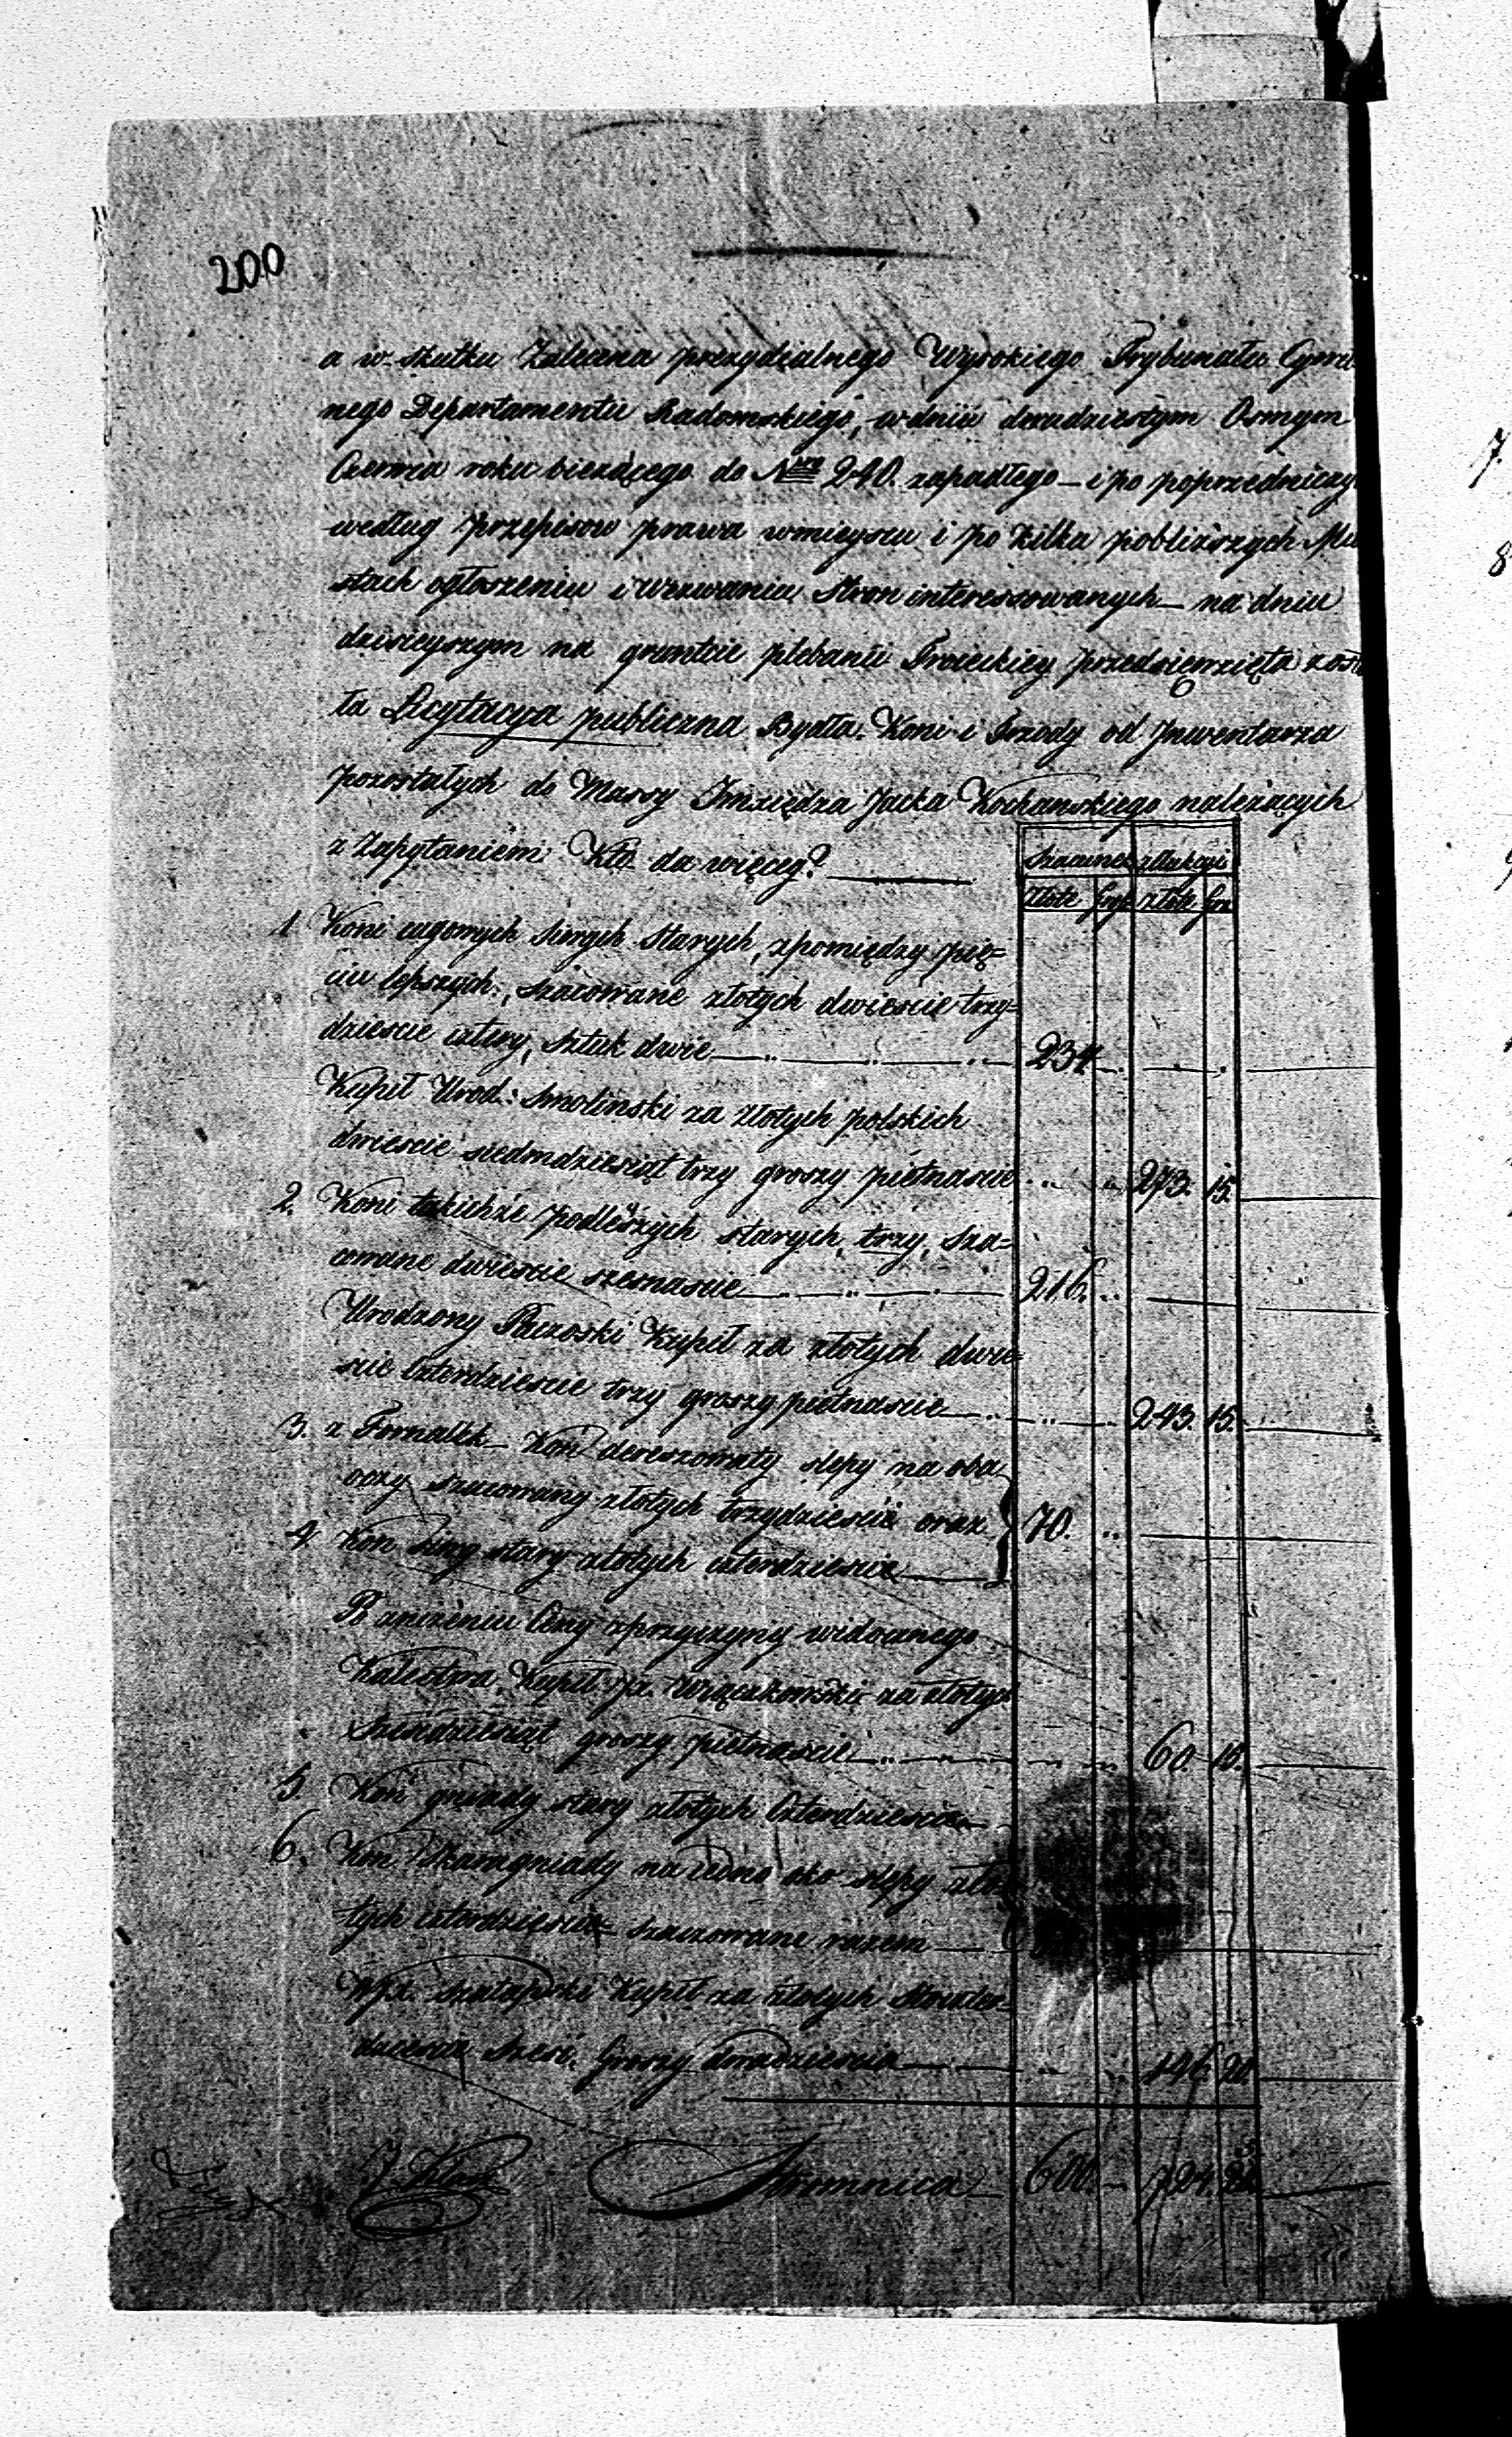 200
a w skutku Zalecenia prezydialnego Wysokiego Trybunału Cywil
nego Departamentu Radomskiego, w dniu dwudziestym Osmym
Czerwca roku bieżącego do Nro 240. zapadłego – i po poprzedniczym
według przepisow prawa w mieyscu i po kilku pobliższych Mia
stach ogłoszeniu i wezwaniu Stron interessowanych – na dniu
dzisieyszym na gruncie plebanii Troieckiey przedsięwzięta zosta
ła Licytacya publiczna Bydła. Koni i Trzody od Jnwentarza
pozostałych do Massy Jmxiędza Jacka Kochanskiego należących
z Zapytaniem Kto da więcey?
Szacunek z Aukcyi
Złote Gro złote Gro
1 Koni cugowych siwych starych, zpomiędzy pię=
ciu lepszych, szacowane złotych dwieście trzy=
dzieście cztery, sztuk dwie 234
Kupił Urod: Smolinski za złotych polskich
dwieście siedmdziesiąt trzy groszy pietnascie 273. 15.
2. Koni takichże podleyszych starych, trzy, sza=
cowane dwieście szesnascie 216.
Urodzony Paczoski Kupił za złotych dwie=
ście czterdzieście trzy groszy pietnascie 243. 15.
3. z Fornalek – Koń dereszowaty slepy na oba
oczy szacowany złotych trzydzieście oraz 70.
4. Koń siwy stary złotych czterdzieście
Po zniżeniu Ceny zprzyczyny widocznego
Kalectwa, Kupił złotych
Sześćdziesiąt groszy pietnascie 60. 15.
5. Koń gniady stary złotych Czterdzieście
6. Koń Skarogniady na iedno oko slepy zło=
tych czterdzieście szacowane razem
Kupił za złotych Stoczter=
dzieście sześć, Groszy dwadzieścia 146. 20.
Stromnica 600. 724. 5.